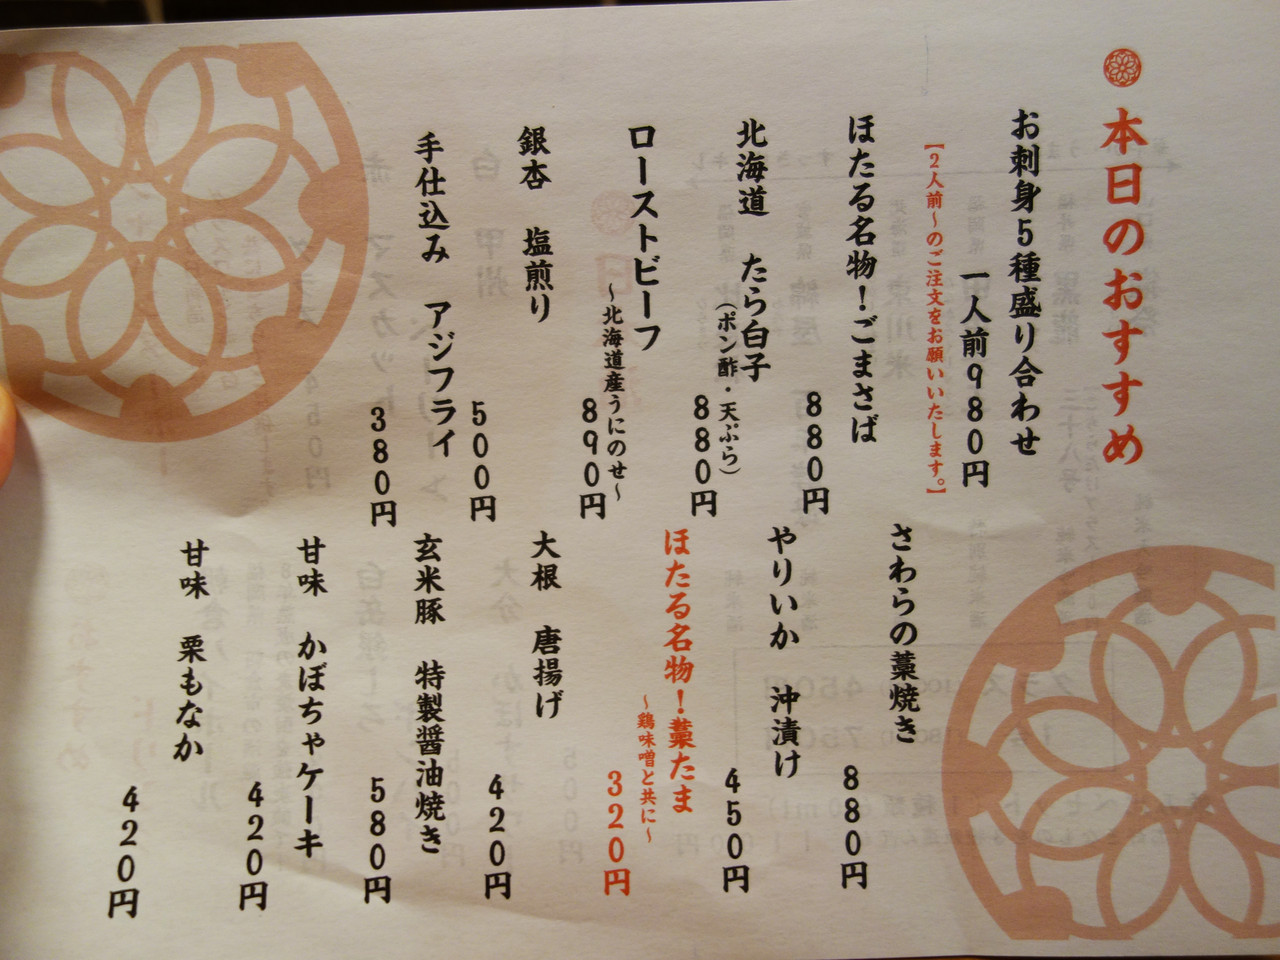 本日のおすすめ
お刺身5種盛り合わせ
一人前980円
【2人前～のご注文をお願いいたします。】
ほたる名物！ごまさば
880円
北海道 たら白子
（ポン酢・天ぷら）
880円
ローストビーフ
～北海道産うにのせ～
890円
銀杏 塩煎り
500円
手仕込み アジフライ
380円
さわらの藁焼き
880円
やりいか 沖漬け
450円
ほたる名物！藁たま
～鶏味噌と共に～
320円
大根 唐揚げ
420円
玄米豚 特製醤油焼き
580円
甘味 かぼちゃケーキ
420円
甘味 栗もなか
420円